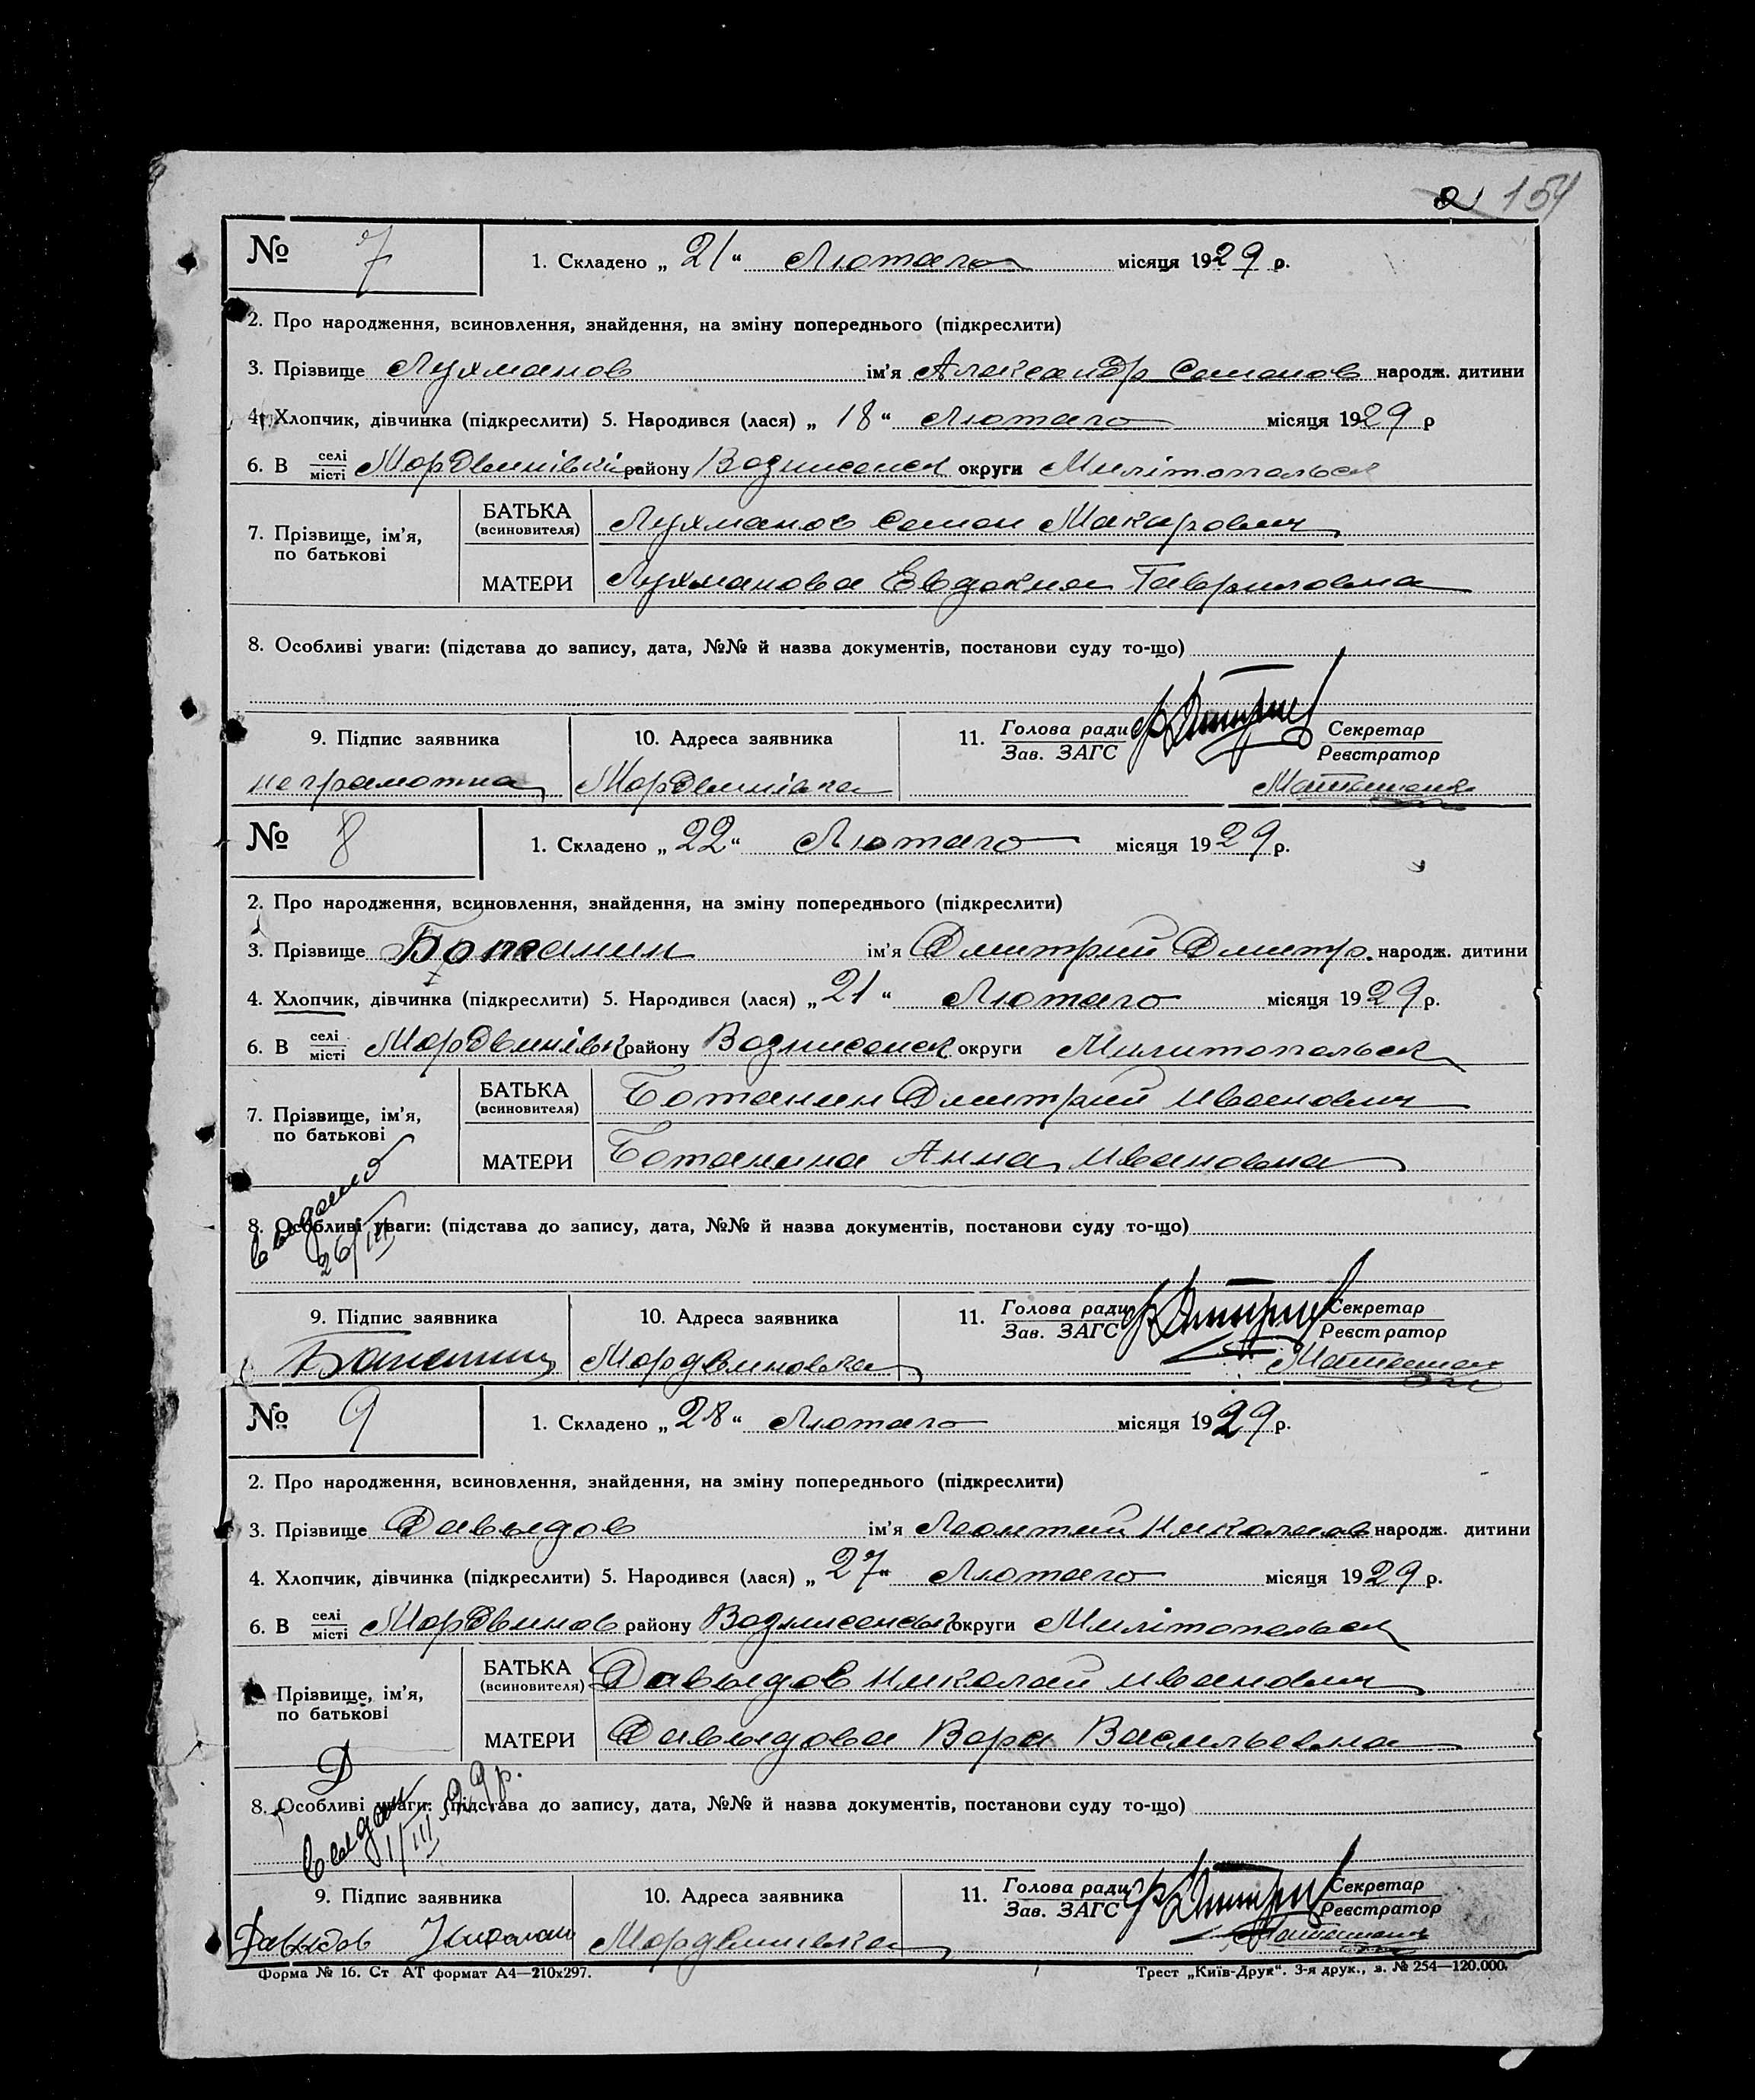 154
№ 7 1. Складено „21“ Лютаго місяця 1929 р.
2. Про народження, всиновлення, знайдення, на зміну попереднього (підкреслити)
3. Прізвище Лухманов ім’я Александр Семенов народж. дитини
4. Хлопчик, дівчинка (підкреслити) 5. Народився (лася) „18“ Лютаго місяця 1929 р
6. В селі/місті Мордвинівкі району Вознисенск округи Милітопольск
7. Прізвище, ім’я, по батькові
БАТЬКА (всиновителя) Лухманов Семен Макарович
МАТЕРИ Лухманова Евдокия Гавриловна
8. Особливі уваги: (підстава до запису, дата, №№ й назва документів, постанови суду то-що)
9. Підпис заявника 10. Адреса заявника 11. Голова ради/Зав. ЗАГС Секретар/Реєстратор
неграмотна Мордвинівка
№ 8 1. Складено „22“ Лютаго місяця 1929 р.
2. Про народження, всиновлення, знайдення, на зміну попереднього (підкреслити)
3. Прізвище ім’я Дмитрий Дмитр. народж. дитини
4. Хлопчик, дівчинка (підкреслити) 5. Народився (лася) „21“ Лютаго місяця 1929 р.
6. В селі/місті Мордвинівк району Вознисенск округи Милитопольск
7. Прізвище, ім’я, по батькові
БАТЬКА (всиновителя) Ботанин Дмитрий Иванович
МАТЕРИ Ботанина Анна Ивановна
8. Особливі уваги: (підстава до запису, дата, №№ й назва документів, постанови суду то-що)
26/III
9. Підпис заявника 10. Адреса заявника 11. Голова ради/Зав. ЗАГС Секретар/Реєстратор
Мордвиновка
№ 9 1. Складено „28“ Лютаго місяця 1929 р.
2. Про народження, всиновлення, знайдення, на зміну попереднього (підкреслити)
3. Прізвище Давыдов ім’я Леонтий Николаев народж. дитини
4. Хлопчик, дівчинка (підкреслити) 5. Народився (лася) „27“ Лютаго місяця 1929 р.
6. В селі/місті Мордвинов району округи Милітопольск
Прізвище, ім’я, по батькові
БАТЬКА (всиновителя) Давыдов Николай Иванович
МАТЕРИ Давыдова Вера Васильевна
8. Особливі уваги: (підстава до запису, дата, №№ й назва документів, постанови суду то-що)
1/III 29р.
9. Підпис заявника 10. Адреса заявника 11. Голова ради/Зав. ЗАГС Секретар/Реєстратор
Давыдов Николай
Форма № 16. Ст АТ формат А4—210х297. Трест „Київ-Друк“. 3-я друк., з. № 254—120.000.